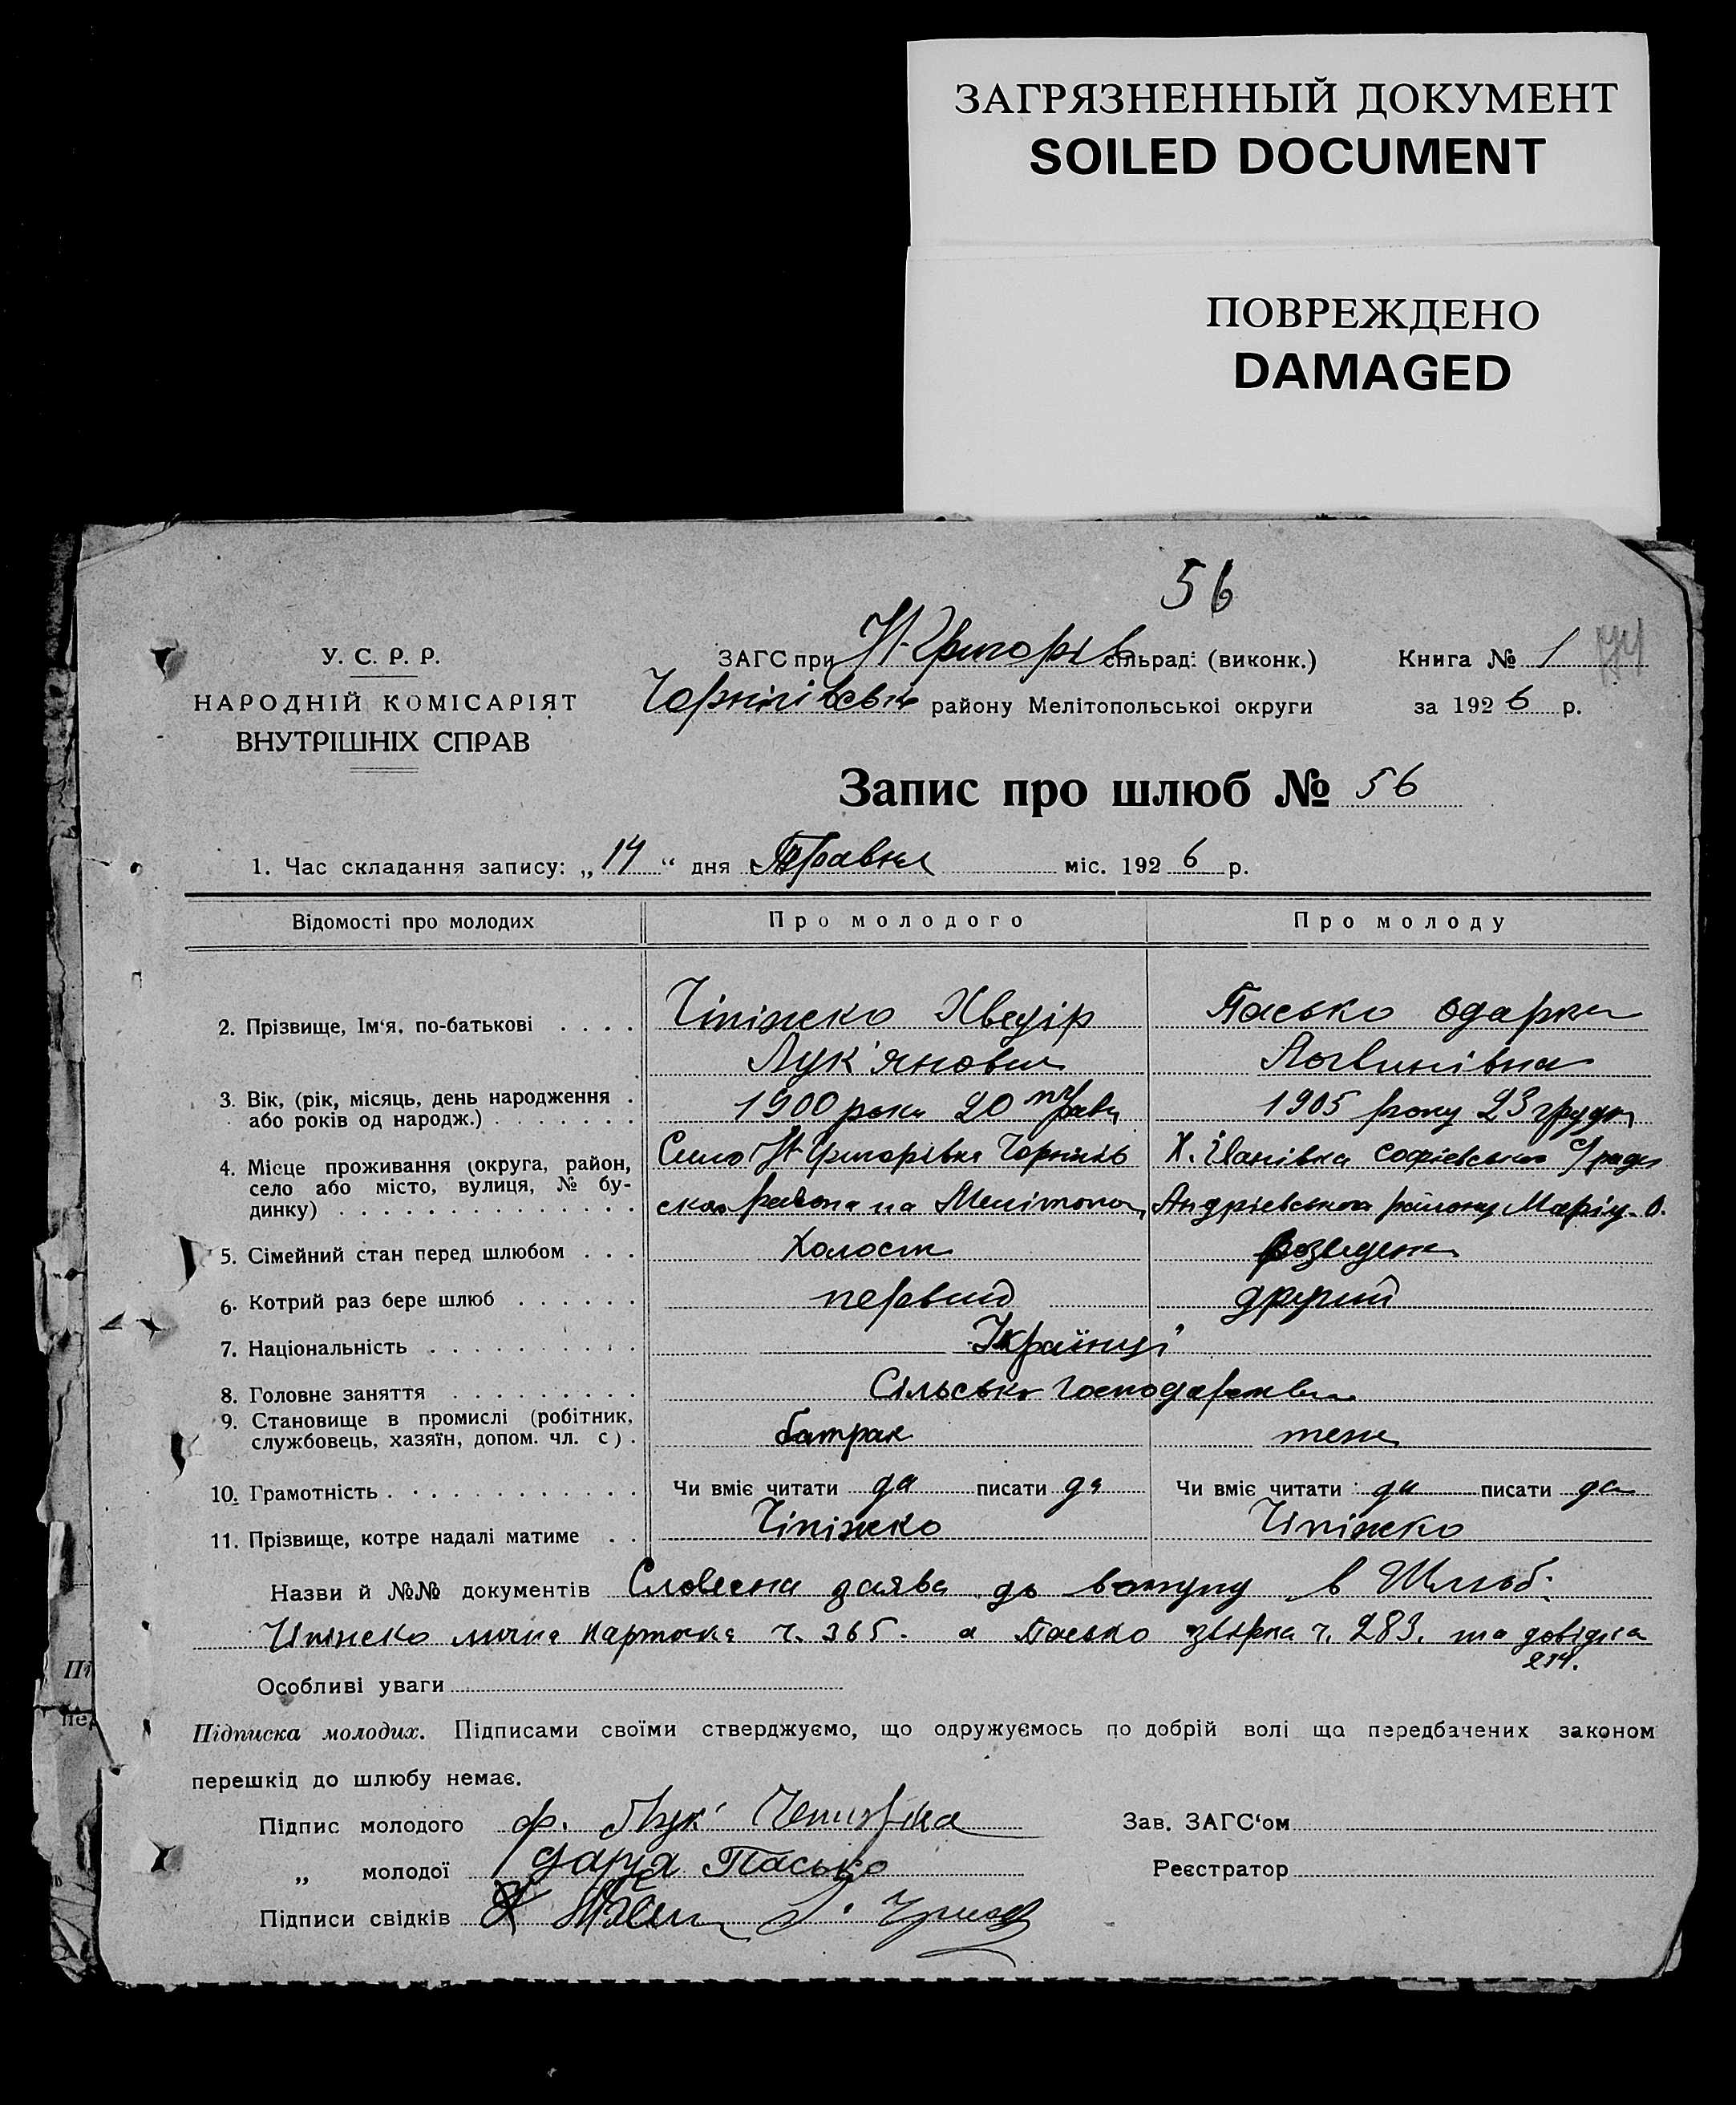 ЗАГРЯЗНЕННЫЙ ДОКУМЕНТ
SOILED DOCUMENT
ПОВРЕЖДЕНО
DAMAGED
56
У. С. Р. Р.
НАРОДНІЙ КОМІСАРІЯТ
ВНУТРІШНІХ СПРАВ
ЗАГС при Н-Григорів сільрад. (виконк.) Книга № 1
Чернігівськ району Мелітопольської округи за 1926 р.
Запис про шлюб № 56
1. Час складання запису: „14“ дня Травня міс. 1926 р.
Відомості про молодих Про молодого Про молоду
2. Прізвище, Ім‘я, по-батькові . . . . Чіпіжко Хведір Пасько Одарка
Лук'янович Логвинівна
3. Вік, (рік, місяць, день народження . 1900 року 20 трав 1905 року 23 грудн
або років од народж.) . . . . . . .
4. Місце проживання (округа, район, Село Н-Григорівка Чернигів Х. Іванівка Софієвської с/ради
село або місто, вулиця, № бу- ског района на Мелітопол Андрієвського району Маріу. О.
динку) . . . . . . . . . . . . . .
5. Сімейний стан перед шлюбом . . . Холост розведена
6. Котрий раз бере шлюб . . . . . . первий другий
7. Національність . . . . . . . . . . Українці
8. Головне заняття . . . . . . . . . Сільське господарство
9. Становище в промислі (робітник, батрак теж
службовець, хазяїн, допом. чл. с) .
10. Грамотність . . . . . . . . . . . . Чи вміє читати да писати да Чи вміє читати да писати да
11. Прізвище, котре надалі матиме . . Чіпіжко Чіпіжко
Назви й №№ документів Словесна заява до вступу в Шлюб.
Чіпіжко лична карточка ч. 365. а Пасько ч. 283. та довідка
214.
Особливі уваги
Підписка молодих. Підписами своїми стверджуємо, що одружуємось по добрій волі що передбачених законом
перешкід до шлюбу немає.
Підпис молодого Ф. Лук' Чепижка Зав. ЗАГС‘ом
„ молодої Дарія Пасько Реєстратор
Підписи свідків